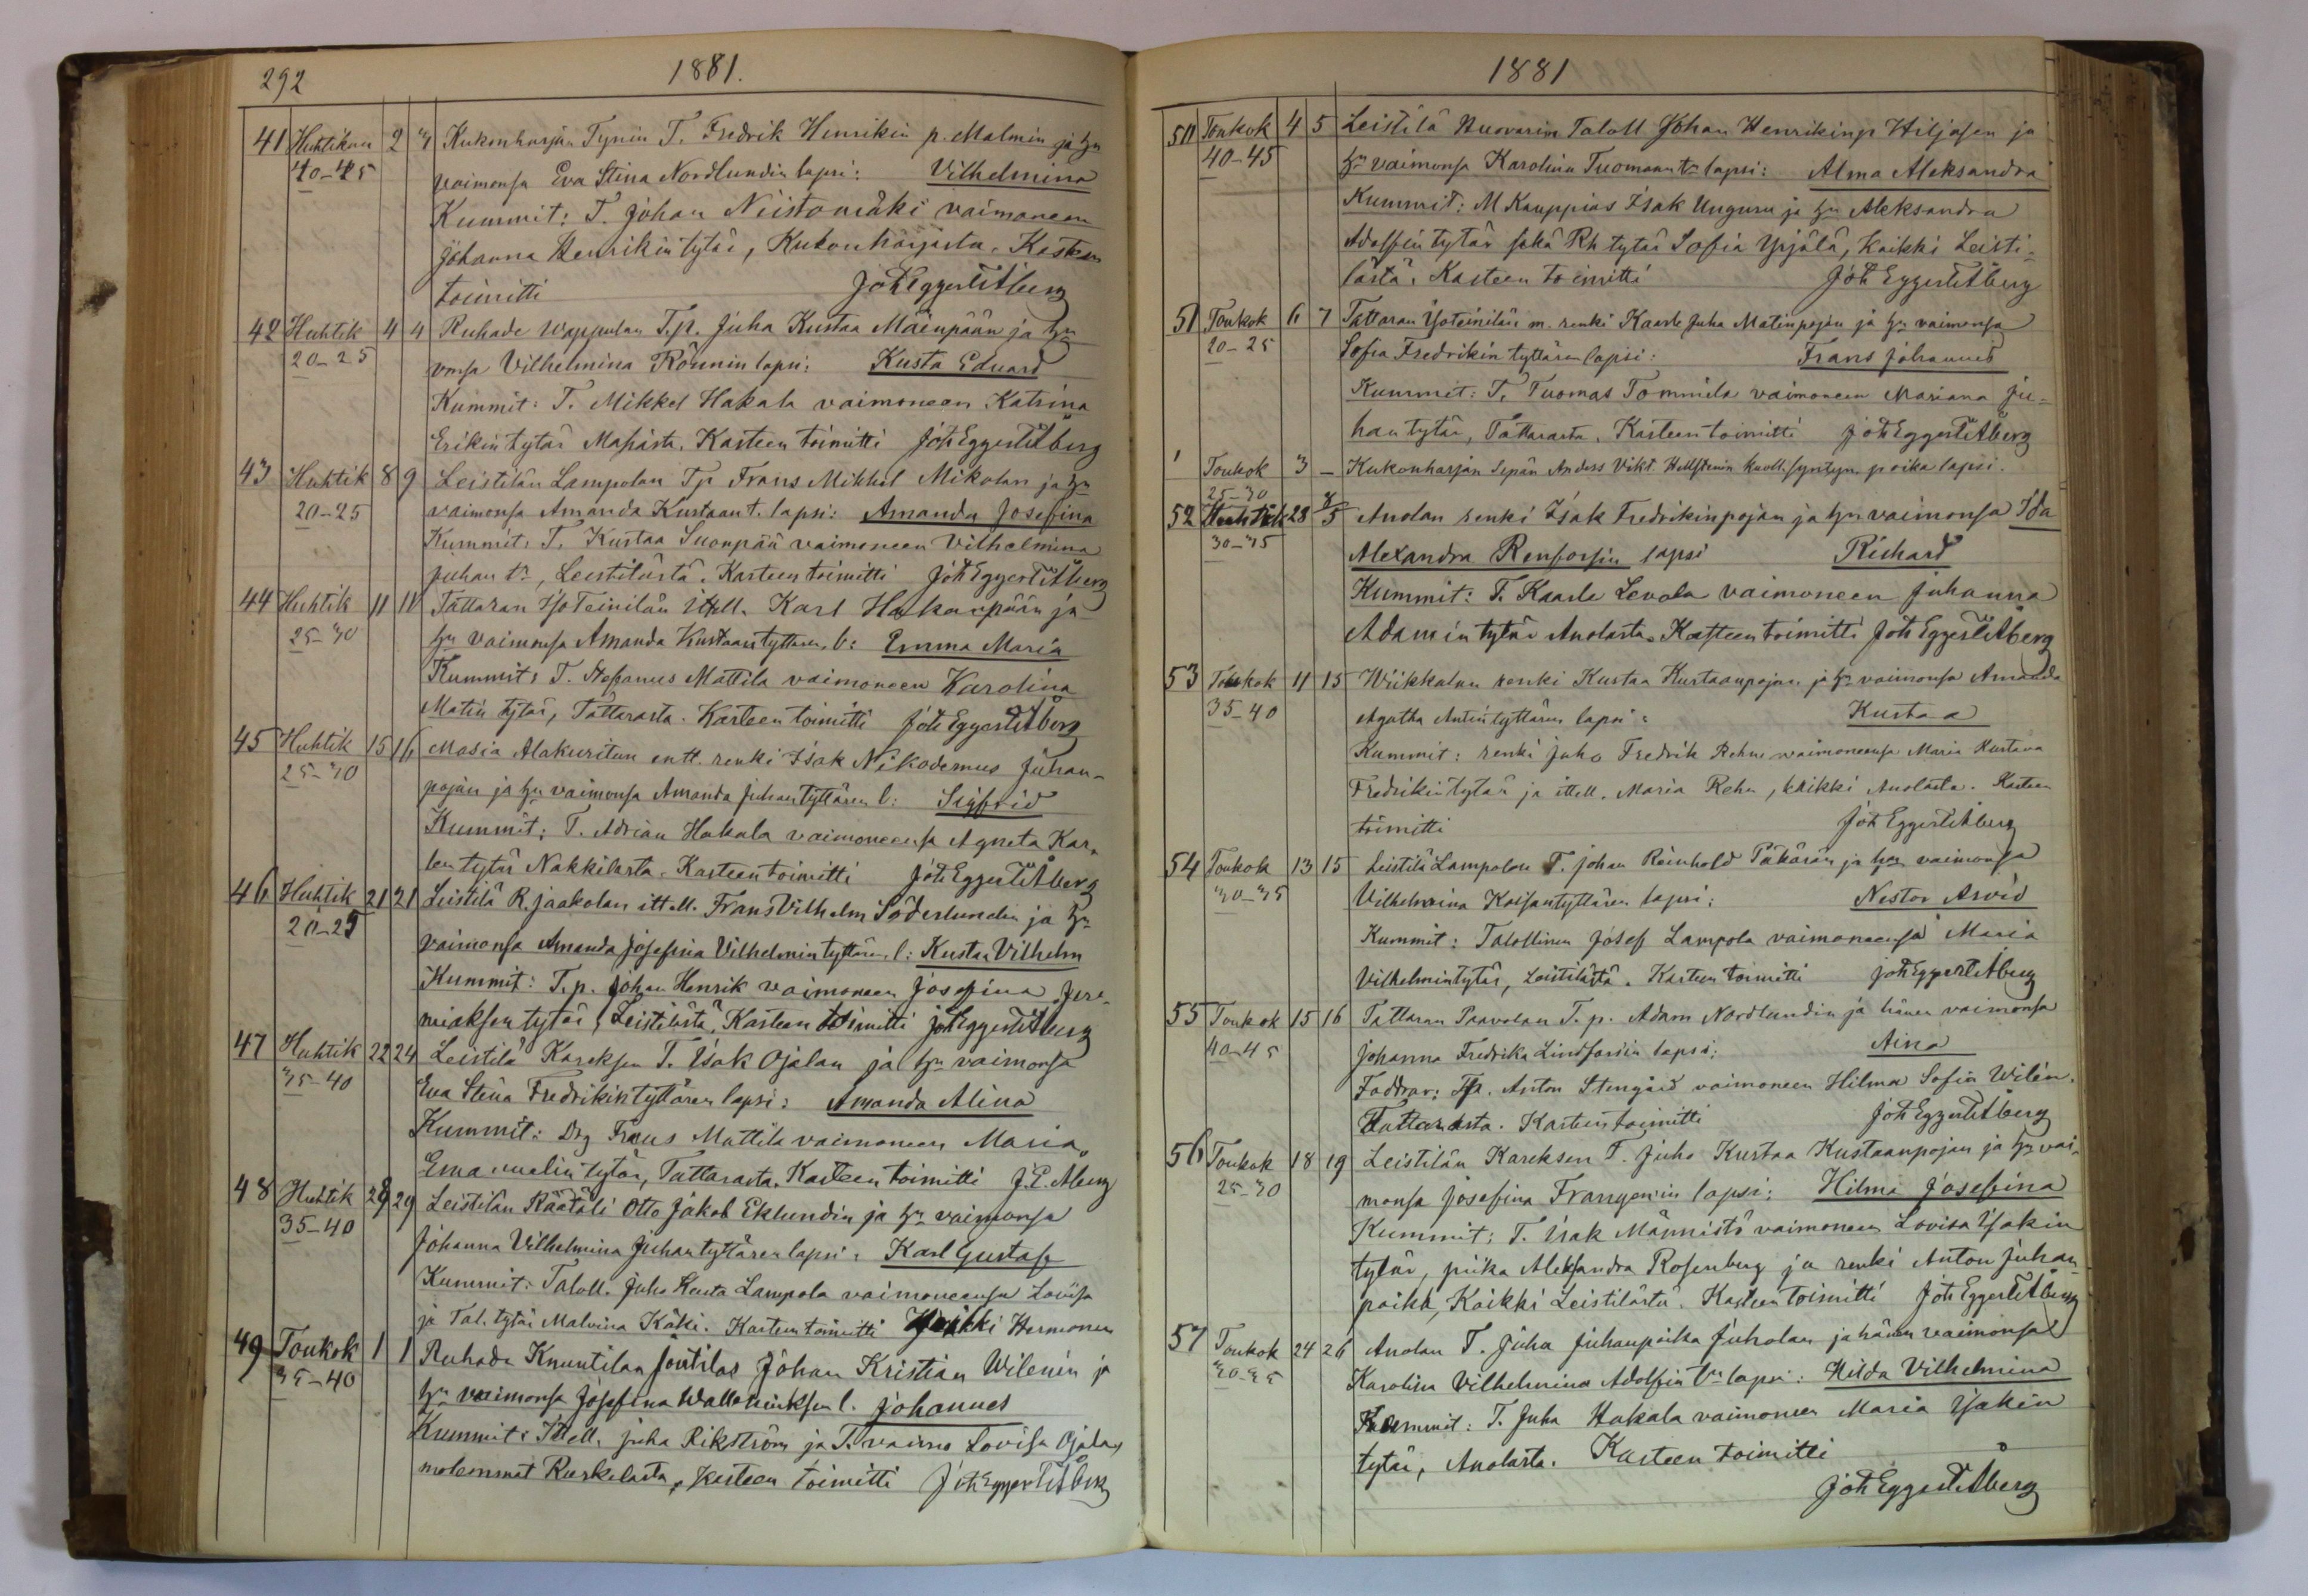 292
1881.
41 Huhtikuu 2 3 Kukonharjan Tynin T. Fredrik Henrikin p. Malmin ja hn
40-45 vaimonsa Eva Stina Nordlundin lapsi: Vilhelmina
Kummit: T. Johan Niistomäki vaimoneen
Johanna Henrikin tytär, Kukonharjasta. Kasteen
toimitti Joh Eggert Åberg
42 Huhtik 4 4 Ruhade Wappulan T.p. Juha Kustaa Mäenpään ja hn
20-25 vmsa Vilhelmina Rönnin lapsi: Kusta Eduard
Kummit: T. Mikkel Hakala vaimoneen Katrina
Erikin tytär Masiasta. Kasteen toimitti Joh Eggert Åberg
43 Huhtik 8 9 Leistilän Lampolan Tp Frans Mikkel Mikolan ja hn
20-25 vaimonsa Amanda Kustaan t. lapsi: Amanda Josefina
Kummit: T. Kustaa Suonpää vaimoneen Vilhelmina
Juhan tr, Leistilästä. Kasteen toimitti Joh Eggert Åberg
44 Huhtik 11 11 Tattaran Iso Teinilän ittell. Karl Hakanpään ja
25-30 hn vaimonsa Amanda Kustaantyttären l: Emma Maria
Kummit: T. Stefanus Mattila vaimoneen Karolina
Matin tytär, Tattarasta. Kasteen toimitti Joh Eggert Åberg
45 Huhtik 15 16 Masia Alakuritun entt. renki Isak Nikodemus Juhan-
25-30 pojan ja hn vaimonsa Amanda Juhantyttären l: Sigfrid
Kummit: T. Adrian Hakala vaimoneensa Agneta Kar-
len tytär Nakkilasta. Kasteen toimitti Joh Eggert Åberg
46 Huhtik 21 21 Leistilä R. Jaakolan ittell. Frans Vilhelm Söderlundin ja hn
20-25 vaimonsa Amanda Josefina Vilhelmintyttären l: Kustaa Vilhelm
Kummit: T.p. Johan Henrik vaimoneen Josefina Jere-
miaksen tytär, Leistilästä, Kasteen toimitti Joh Eggert Åberg
47 Huhtik 22 24 Leistilä Kareksen T. Isak Ojalan ja hn vaimonsa
35-40 Eva Stina Fredrikintyttären lapsi: Amanda Alina
Kummit: Drg Frans Mattila vaimoneen Maria
Emanuelin tytär, Tattarasta. Kasteen toimitti J. E. Åberg
48 Huhtik 28 29 Leistilän Räätäli Otto Jakob Eklundin ja hn vaimonsa
35-40 Johanna Vilhelmina Juhantyttären lapsi: Karl Gustaf
Kummit: Taloll. Juho Kusta Lampola vaimoneensa Lovisa
ja Tal. tytär Malvina Käki. Kasteen toimitti Heikki Hermonen
49 Toukok 1 1 Ruhade Knuutilan soutilas Johan Kristian Wilenin j
35-40 hn vaimonsa Josefina Walleniuksen l. Johannes
Kummit: Ittell. Juha Rikström ja T. vaimo Lovisa Ojala,
molemmat Ruskelasta, Kasteen toimitti Joh Eggert Åberg
1881
50 Toukok 4 5 Leistilä Nuovarin Taloll Johan Henrikinp Hiljasen ja
40-45 hn vaimonsa Karolina Tuomaan tn lapsi: Alma Aleksandra
Kummit: M Kauppias Isak Unguru ja hn Aleksandra
Adolfin tytär sekä Rh tytär Sofia Yrjölä, Kaikki Leisti-
lästä. Kasteen toimitti Joh Eggert Åberg
51 Toukok 6 7 Tattaran Isoteinilän m. renki Kaarle Juha Matinpojan ja hn vaimonsa
20-25 Sofia Fredrikin tyttären lapsi: Frans Johannes
Kummit: T. Tuomas Tommila vaimoneen Mariana Ju-
han tytär, Tattarasta. Kasteen toimitti Joh Eggert Åberg
1 Toukok 3 - Kukonharjan Sepän Anders Vikt. Hellstenin kuoll. syntyn. poika lapsi.
25-30
52 Huhtik 28 8/5 Anolan renki Isak Fredrikinpojan ja hn vaimonsa Ida
30-35 Alexandra Renforsin lapsi Richard
Kummit: T. Kaarle Levola vaimoneen Juhanna
Adamin tytär Anolasta. Kasteen toimitti Joh Eggert Åberg
53 Toukok 11 15 Wiikkalan renki Kustaa Kustaanpojan ja hn vaimonsa Amanda
35-40 Agatha Antintyttären lapsi: Kustaa
Kummit: renki Juho Fredrik Rehn vaimoneensa Maria Kustava
Fredrikin tytär ja ittell. Maria Rehn, kaikki Anolasta. Kasteen
toimitti Joh Eggert Åberg
54 Toukok 13 15 Leistilä Lampolan T. Johan Reinhold Päkärän ja hn vaimonsa
30-35 Vilhelmina Kaisantyttären lapsi: Nestor Arvid
Kummit: Talollinen Josef Lampola vaimoneensa Maria
Vilhelmintytär, Leistilästä. Kasteen toimitti Joh Eggert Åberg
55 Toukok 15 16 Tattaran Paavolan T. p. Adam Nordlundin ja hänen vaimonsa
40-45 Johanna Fredrika Lindforsin lapsi: Aina
Faddrar: Tp. Anton Stengård vaimoneen Hilma Sofia Wilén.
Tattarasta. Kasteen toimitti Joh Eggert Åberg
56 Toukok 18 19 Leistilän Kareksen T. Juho Kustaa Kustaanpojan ja hn vai-
25-30 monsa Josefina Fransgenin lapsi: Hilma Josefina
Kummit: T. Isak Männistö vaimoneen Lovisa Isakin
tytär, piika Aleksandra Rosenberg ja renki Anton Juhan
poika, Kaikki Leistilästä. Kasteen toimitti Joh Eggert Åberg
57 Toukok 24 26 Anolan T. Juha Juhanpoika Juholan ja hänen vaimonsa
30-35 Karolina Vilhelmina Adolfin tn lapsi: Hilda Vilhelmina
Kummit: T. Juha Hakala vaimoneen Maria Isakin
tytär, Anolasta. Kasteen toimitti
Joh Eggert Åberg